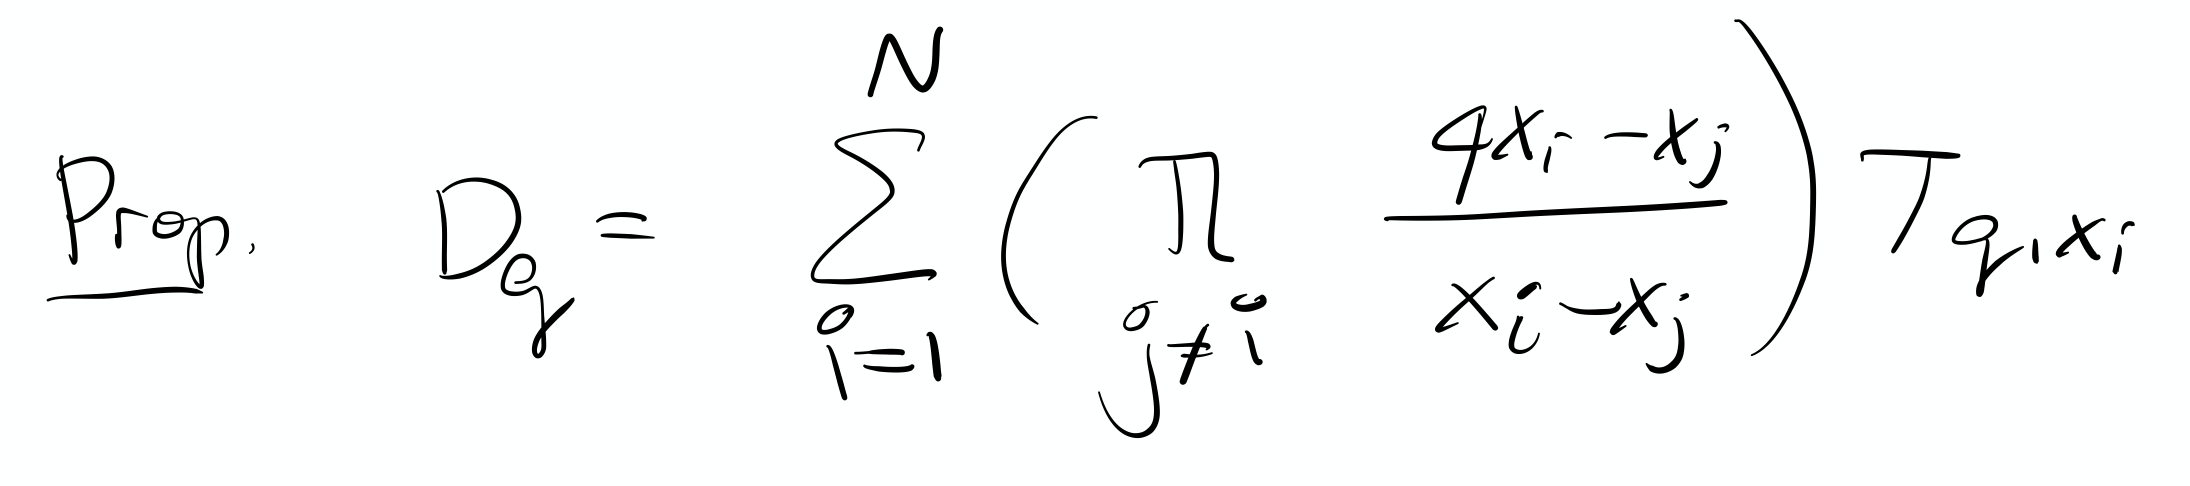 Prop. D_q = \sum_{i=1}^{N} \left( \prod_{j \neq i} \frac{qx_i - x_j}{x_i - x_j} \right) T_{q, x_i}